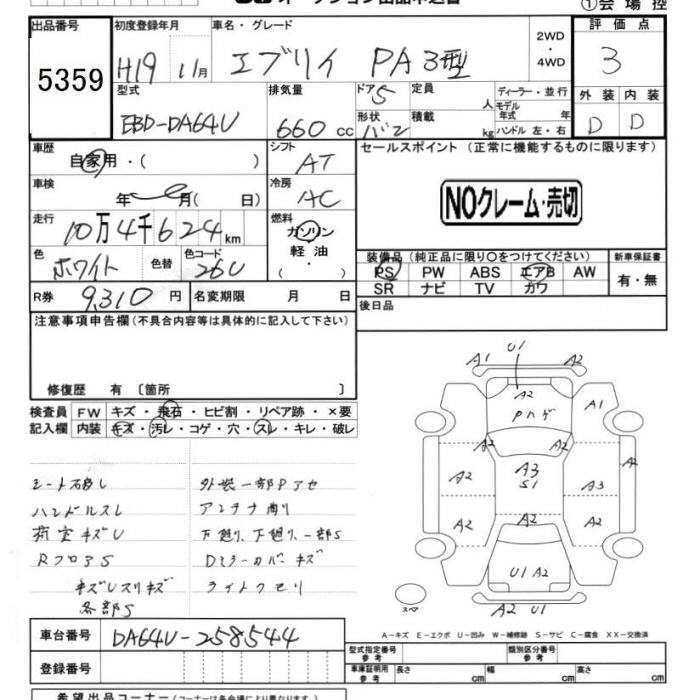 ①会場控
出品番号 初度登録年月 車名・グレード 2WD ・ 4WD 評価点
5359 H19 11月 エブリイ PA 3型 3
型式 排気量 ドア 5 定員 人 ディーラー・並行 外装 内装
EBD-DA64V 660 cc 形状 バン 積載 kg モデル年式 年 ハンドル 左・右 D D
車歴 自家用・( ) シフト AT セールスポイント (正常に機能するものに限ります)
車検 年 月( 日) 冷房 AC NOクレーム・売切
走行 10万4千624km 燃料 ガソリン・軽油・( )
色 ホワイト 色替 色コード 26U 装備品(純正品に限り○をつけてください) 新車保証書
PS PW ABS エアB AW 有・無
SR ナビ TV カワ
R券 9,310 円 名変期限 月 日 後日品
注意事項申告欄(不具合内容等は具体的に記入して下さい)
修復歴 有〔箇所 〕
検査員 FW キズ・飛石・ヒビ割・リペア跡・×要
記入欄 内装 キズ・汚レ・コゲ・穴・スレ・キレ・破レ
外装一部Pアセ
ハンドルスレ
荷室キズU
RフロアS
Dミラーカバーキズ
キズUスリキズ
ライトクモリ
各部S
A1 U1 A2
A2
Pハゲ A1
A2 A2
A2 A3 S1 A3 A2
A2 A2 A2
U1 A2
スペア A2 U1
A-キズ E-エクボ U-凹み W-補修跡 S-サビ C-腐食 XX-交換済
車台番号 DA64V-258544
型式指定番号 参考 類別区分番号 参考
登録番号 車庫証明用 参考 長さ cm 幅 cm 高さ cm
希望出品コーナー(コーナーは各会場により異なります)